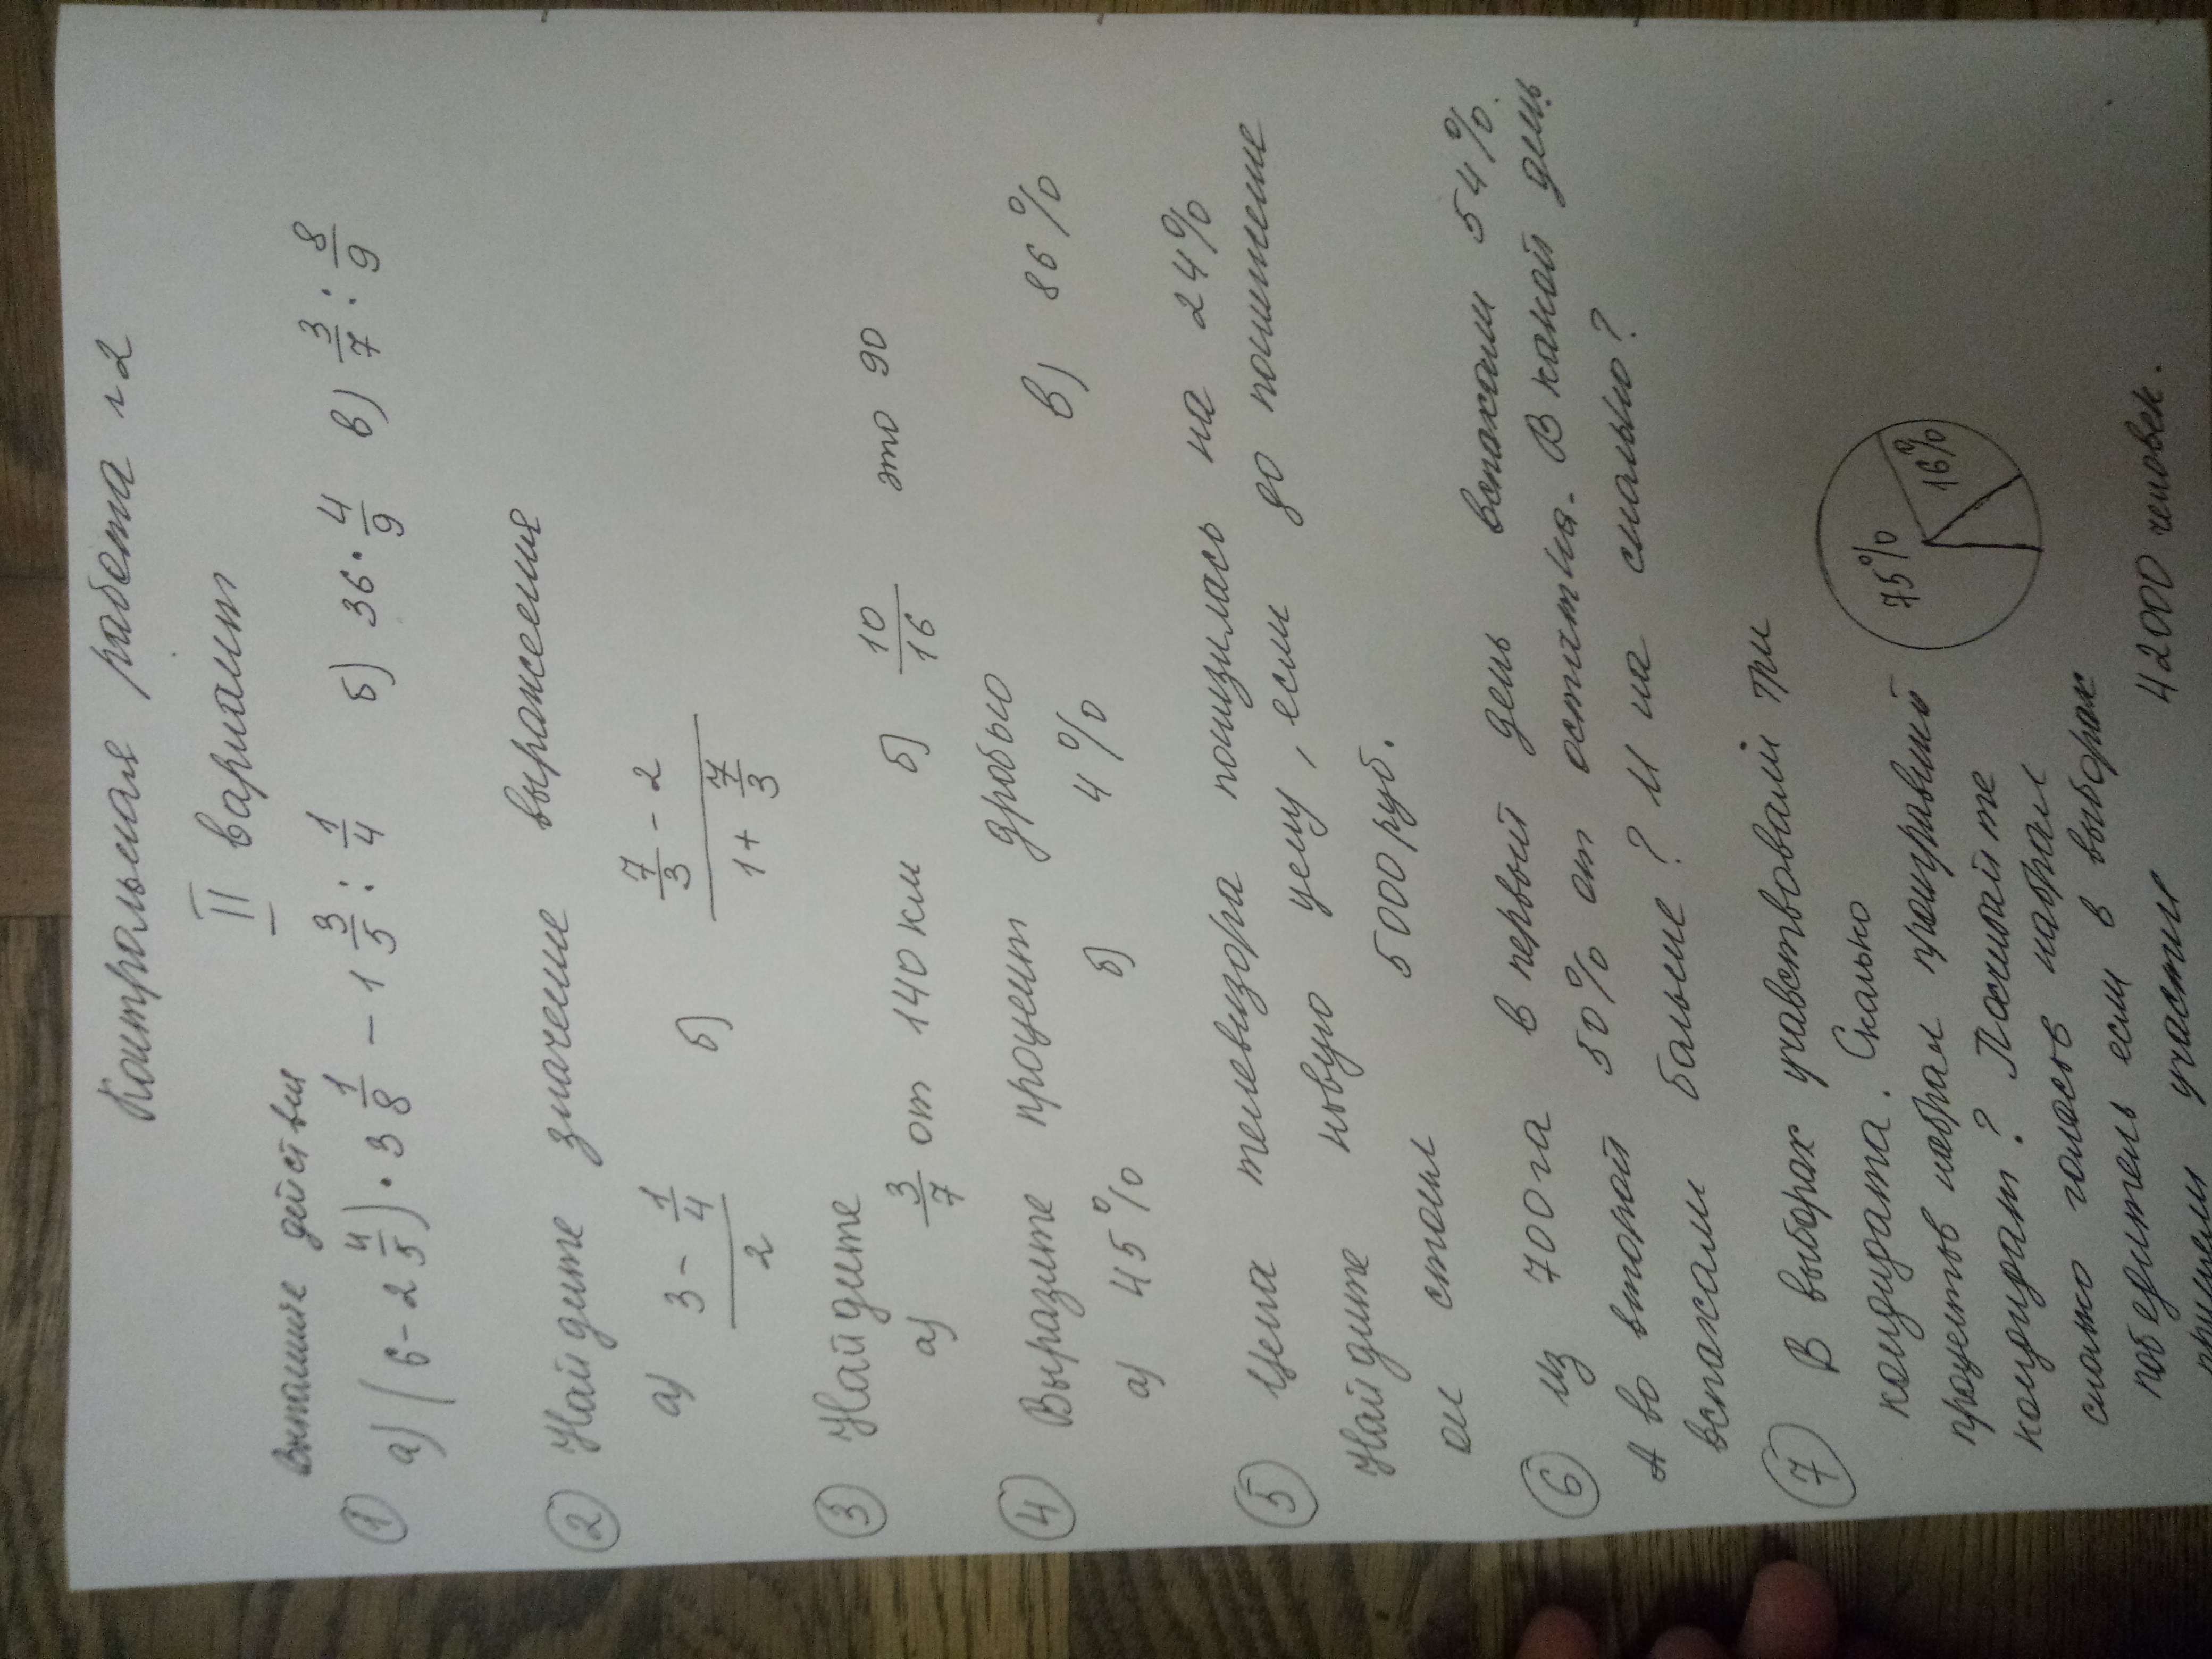 Контрольная работа №2
II вариант
Выполните действия
① а) (6 - 2 4/5) · 3 1/8 - 1 3/5 : 1/4 б) 36 · 4/9 в) 3/7 : 8/9
② Найдите значение выражения
а) (3 - 1/4)/2 б) (7/3 - 2)/(1 + 7/3)
③ Найдите
а) 3/7 от 140 км б) 10/16 это 90
④ Выразите процент дробью
а) 45% б) 4% в) 86%
⑤ Цена телевизора понизилась на 24%
Найдите новую цену, если до понижение
он стоил 5000 руб.
⑥ Из 700 га в первый день вспахали 54%.
А во второй 50% от остатка. В какой день
вспахали больше? И на сколько?
⑦ В выборах учавствовали три
кандидата. Сколько
процентов набрал проигравший
кандидат? Посчитайте
сколько голосов набрал
победитель если в выборах
приняли участие 42000 человек.
75%
16%